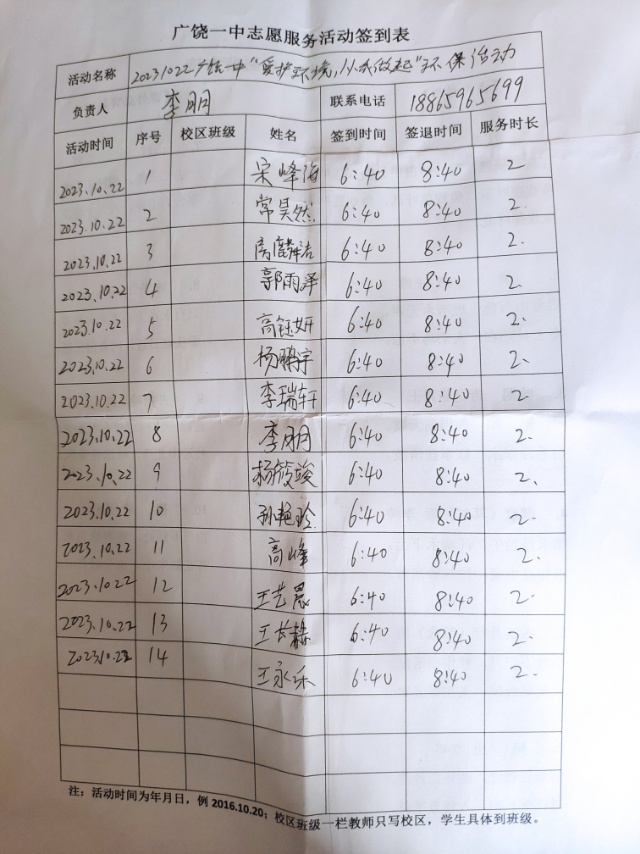 广饶一中志愿服务活动签到表
活动名称 20231022广饶一中"爱护环境,从我做起"环保活动
负责人 李明 联系电话 18865965699
活动时间 序号 校区班级 姓名 签到时间 签退时间 服务时长
2023.10.22 1 宋峰海 6:40 8:40 2
2023.10.22 2 常昊然 6:40 8:40 2.
2023.10.22 3 6:40 8:40 2.
2023.10.22 4 郭雨泽 6:40 8:40 2.
2023.10.22 5 高钰妍 6:40 8:40 2.
2023.10.22 6 杨鹏宇 6:40 8:40 2.
2023.10.22 7 李瑞轩 6:40 8:40 2.
2023.10.22 8 李明 6:40 8:40 2.
2023.10.22 9 杨筱竣 6:40 8:40 2.
2023.10.22 10 孙艳玲 6:40 8:40 2.
2023.10.22 11 高峰 6:40 8:40 2.
2023.10.22 12 王艺晨 6:40 8:40 2.
2023.10.22 13 6:40 8:40 2.
2023.10.22 14 王永乐 6:40 8:40 2.
注:活动时间为年月日,例 2016.10.20;校区班级一栏教师只写校区,学生具体到班级。